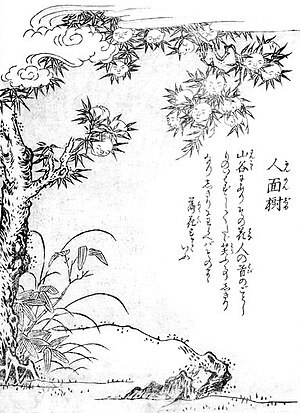 人面樹
山谷にありその花人の首のごとし
ものいはずしてたゞ笑ふ事しきり
なりしきりにわらへば
落花すといふ